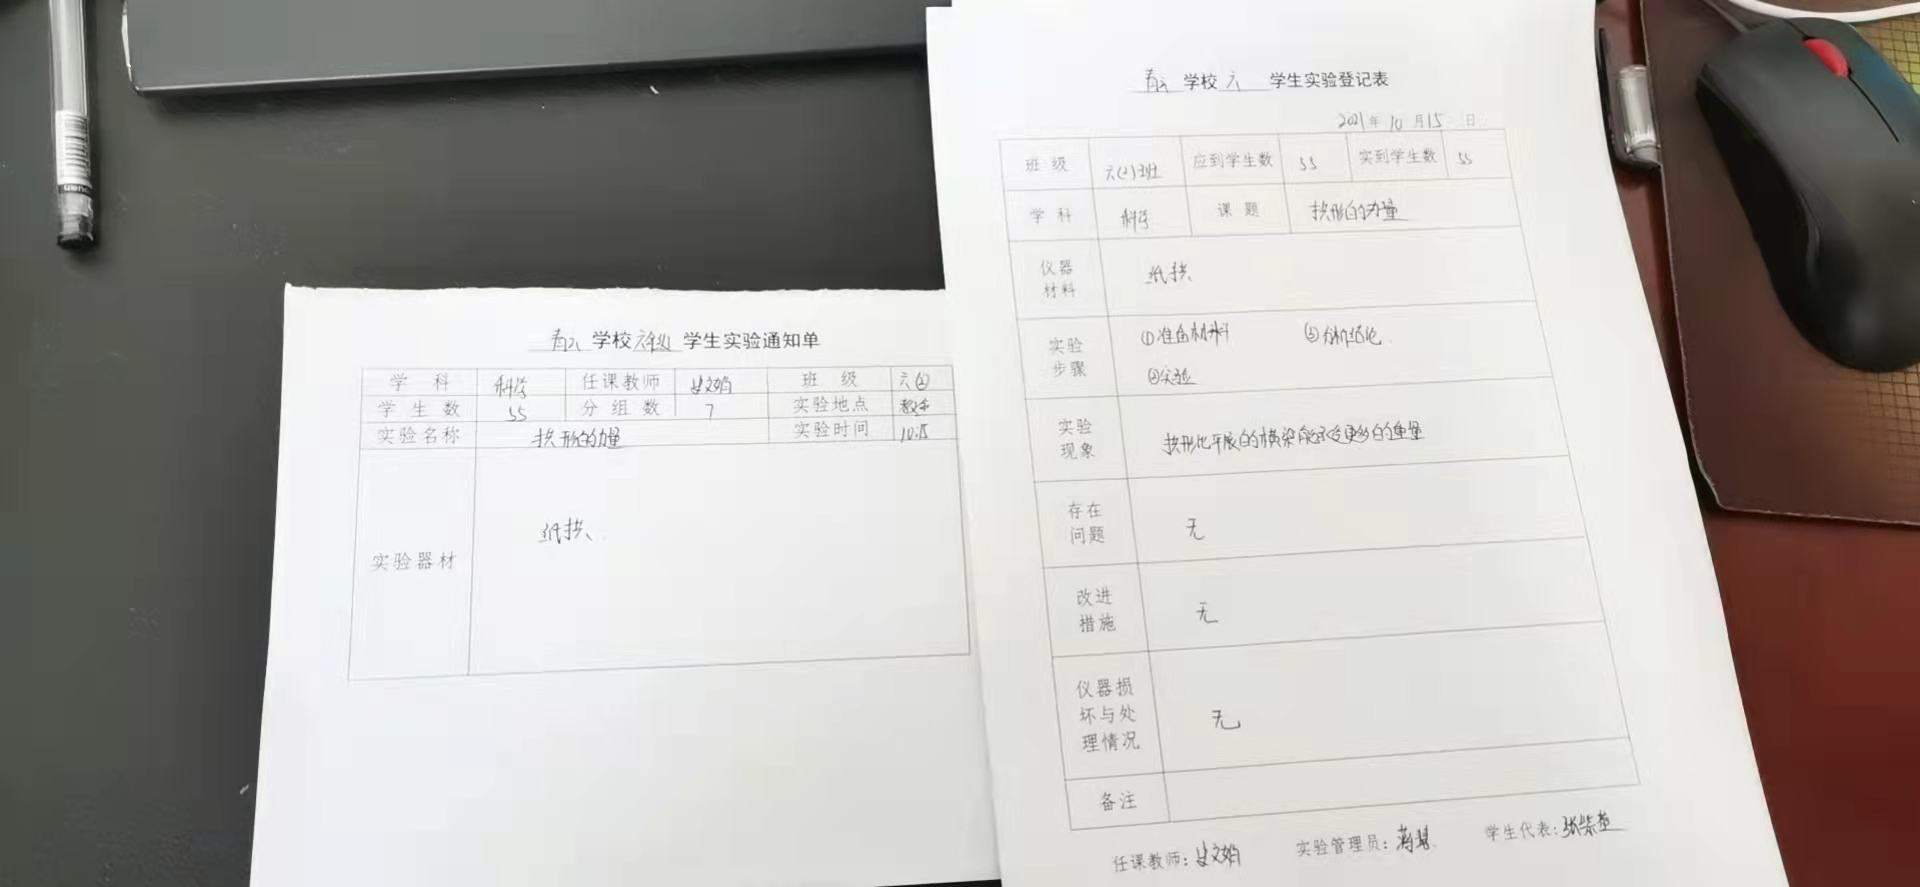 学校 六年级 学生实验通知单
学科 科学 任课教师 班级 六(2)
学生数 55 分组数 7 实验地点 教室
实验名称 拱形的力量 实验时间 10.15
实验器材 纸拱、
学校 六 学生实验登记表
2021年10月15日
班级 六(2)班 应到学生数 55 实到学生数 55
学科 科学 课题 拱形的力量
仪器材料 纸拱、
实验步骤 ①准备材料 ③分析结论.
②实验
实验现象 拱形比平展的横梁能承受更多的重量
存在问题 无
改进措施 无
仪器损坏与处理情况 无
备注
任课教师: 实验管理员: 学生代表: